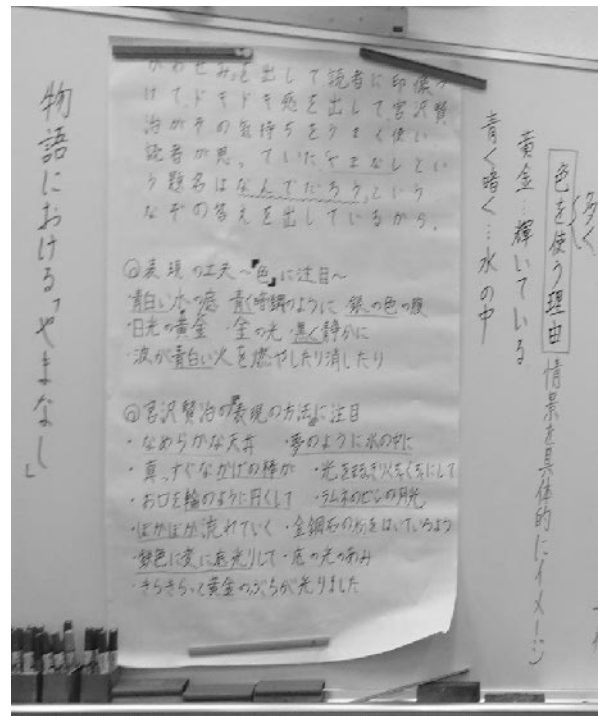 多く
色を使う理由 情景を具体的にイメージ
黄金…輝いている
青く暗く…水の中
かわせみを出して読者に印像づ
けて、ドキドキ感を出して、宮沢賢
治がその気持ちをうまく使い
読者が思っていたやまなしとい
う題名はなんでだろう、という
なぞの答えを出しているから。
◎表現の工夫〜「色」に注目〜
・青白い水の底 青く暗く鋼のように 銀の色の腹
・日光の黄金 ・金の光 ・黒く静かに
・波が青白い火を燃やしたり消したり
◎宮沢賢治の「表現の方法」に注目
・なめらかな天井 ・夢のように水の中に
・真っすぐなかげの棒が ・光をまるきりくちゃくちゃにして
・お口を輪のように円くして ・ラムネのビンの月光
・ぽかぽか流れていく ・金鋼石の粉をはいているよう
・鉄色に変に底光りして ・底の光のあみ
・きらきらっと黄金のぶちが光りました
物語における「やまなし」